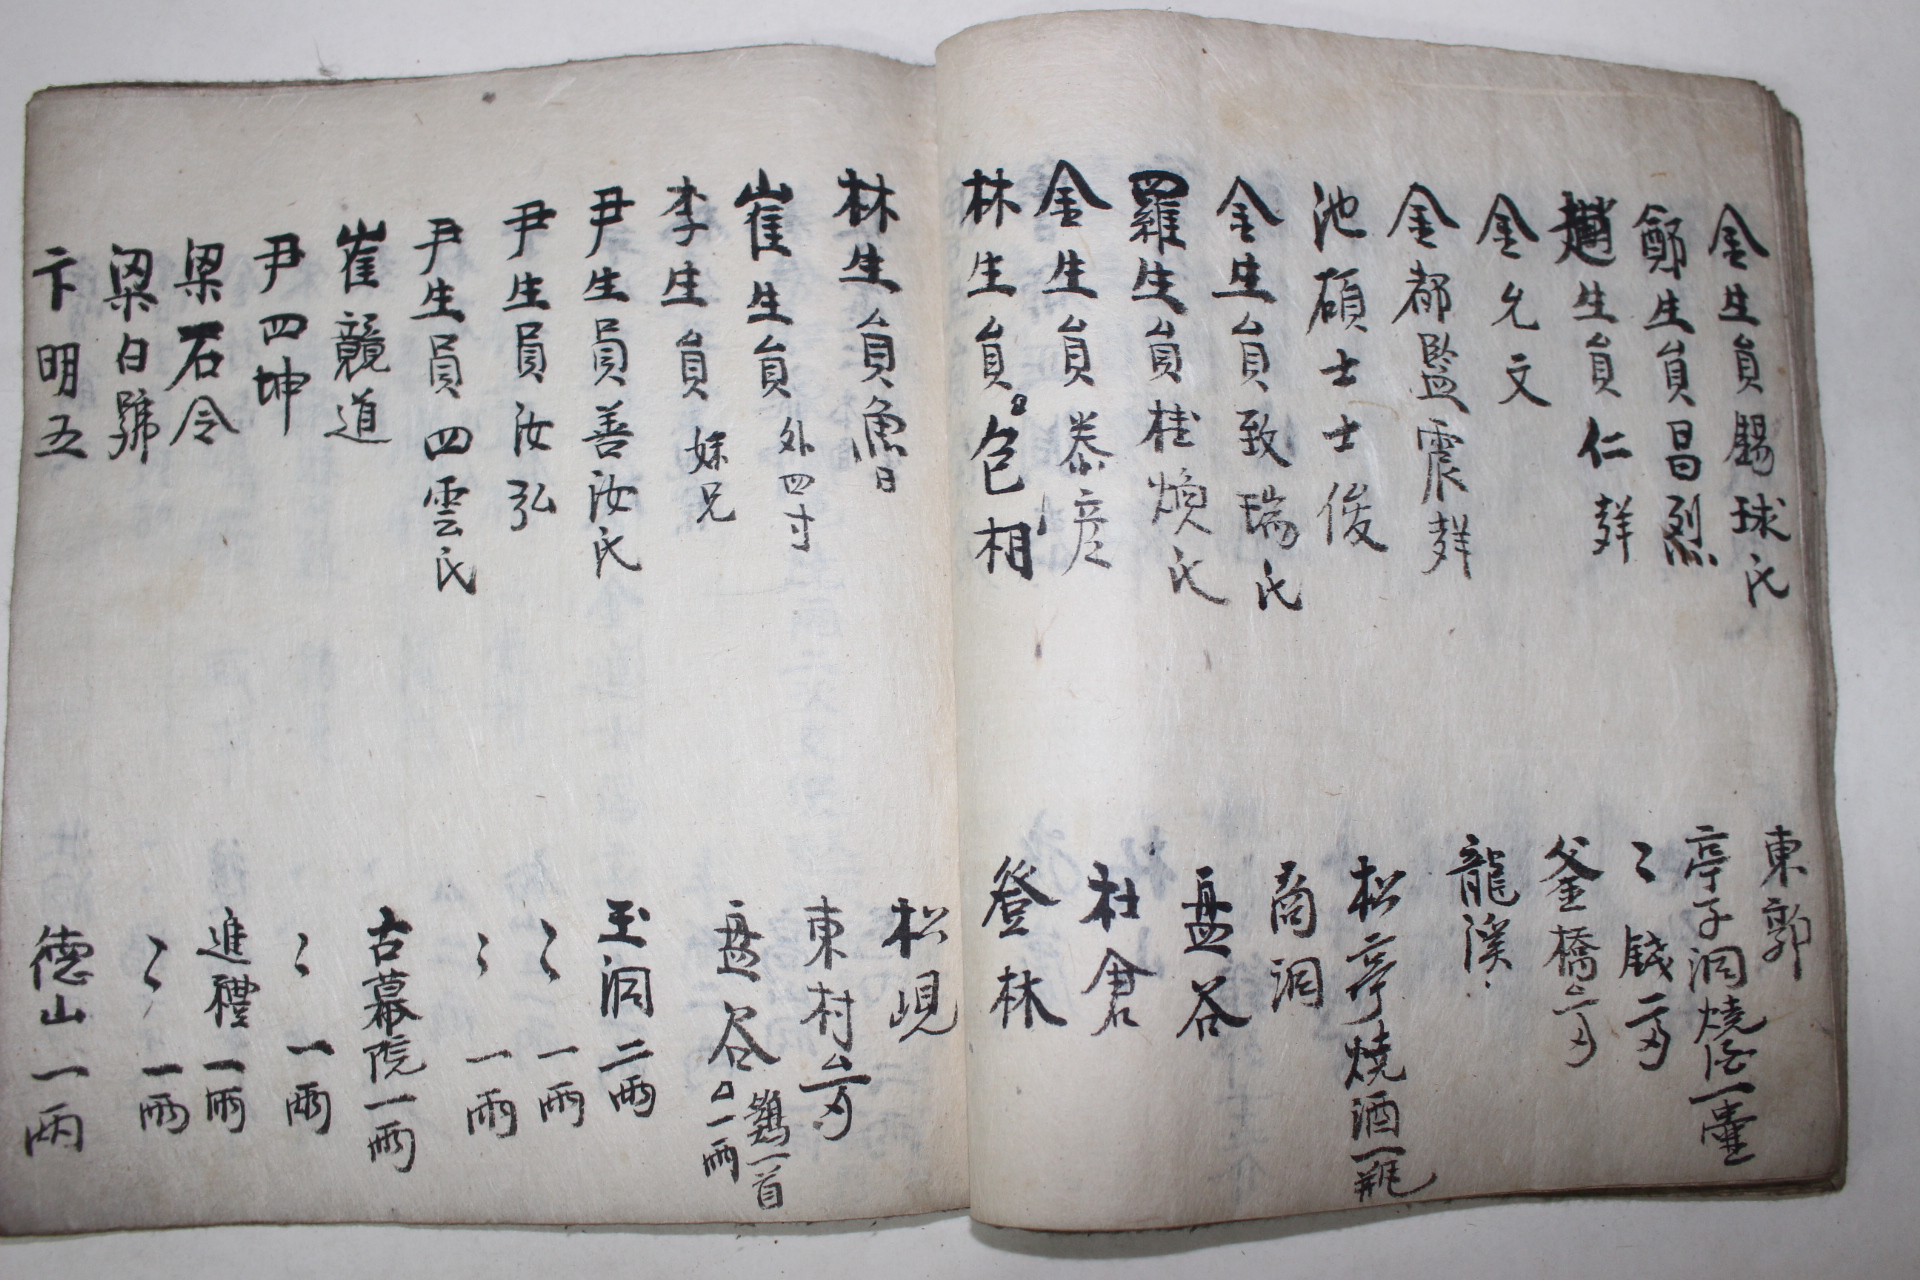 金生員錫球氏 東郭
鄭生員昌烈 亭子洞燒酒一壷
趙生員仁群 〻 錢二戔
金允文 釜橋二戔
金都監震群 龍溪
池碩士士俊 松亭燒酒一瓶
金生員致瑞氏 商洞
羅生員桂煥氏 盘谷
金生員泰彦 杜倉
林生員色相 登林
林生員 松峴
崔生員 外四寸 東村 鷄一首
李生員 妹兄 盘谷 一兩
尹生員善汝氏 玉洞二兩
尹生員汝弘 〻 一兩
尹生員四雲氏 〻 一兩
崔競道 古幕院一兩
尹四坤 〻 一兩
梁石令 進禮一兩
梁白號 〻 一兩
卞明五 德山一兩